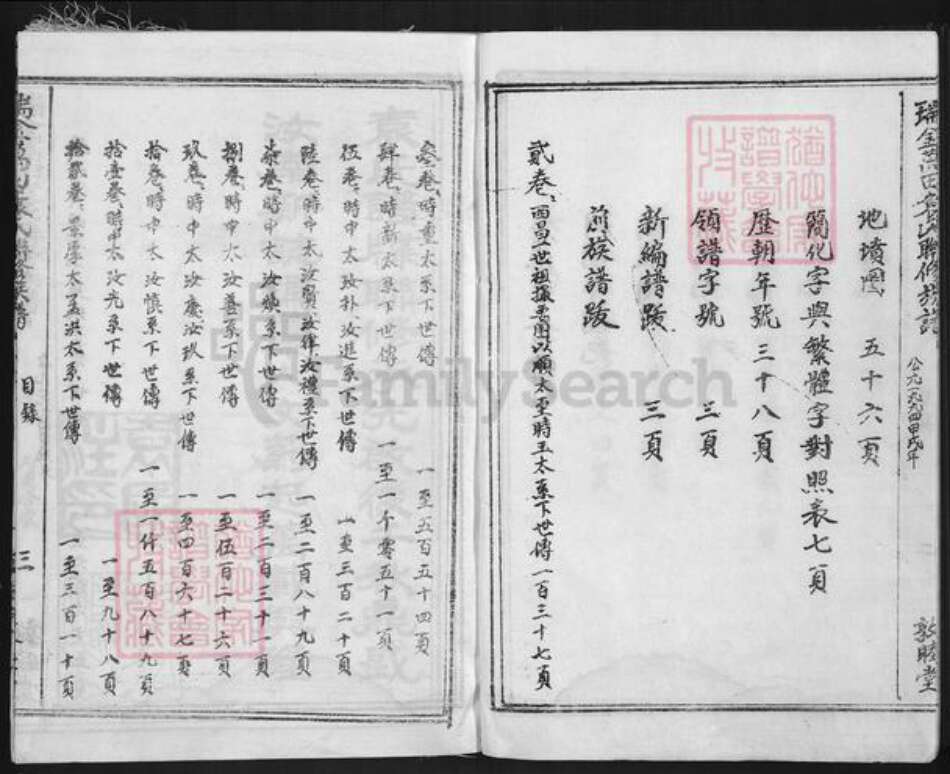 公元一九九四甲戌年
敦睦堂
地墳圖 五十六頁
簡化字與繁體字對照表七頁
歷朝年號 三十八頁
領譜字號 三頁
新編譜跋 三頁
前族譜跋
貳卷、西昌世祖振 圖以順太至時玉太系下世傳一百三十七頁
叁卷、時重太系下世傳 一至五百五十四頁
肆卷、時新太系下世傳 一至一仟零五十一頁
伍卷、時中太汝朴汝進系下世傳 一至三百二十頁
陸卷、時中太汝賢汝律汝禮系下世傳 一至二百八十九頁
柒卷、時中太汝煥系下世傳 一至二百三十一頁
捌卷、時中太汝善系下世傳 一至伍百二十六頁
玖卷、時中太汝慶汝玖系下世傳 一至四百六十七頁
拾卷、時中太汝慎系下世傳 一至一仟五百八十九頁
拾壹卷、時中太汝光系下世傳 一至九十八頁
拾貳卷、景厚太孟洪太系下世傳 一至三百一十頁
目錄
三
FamilySearch